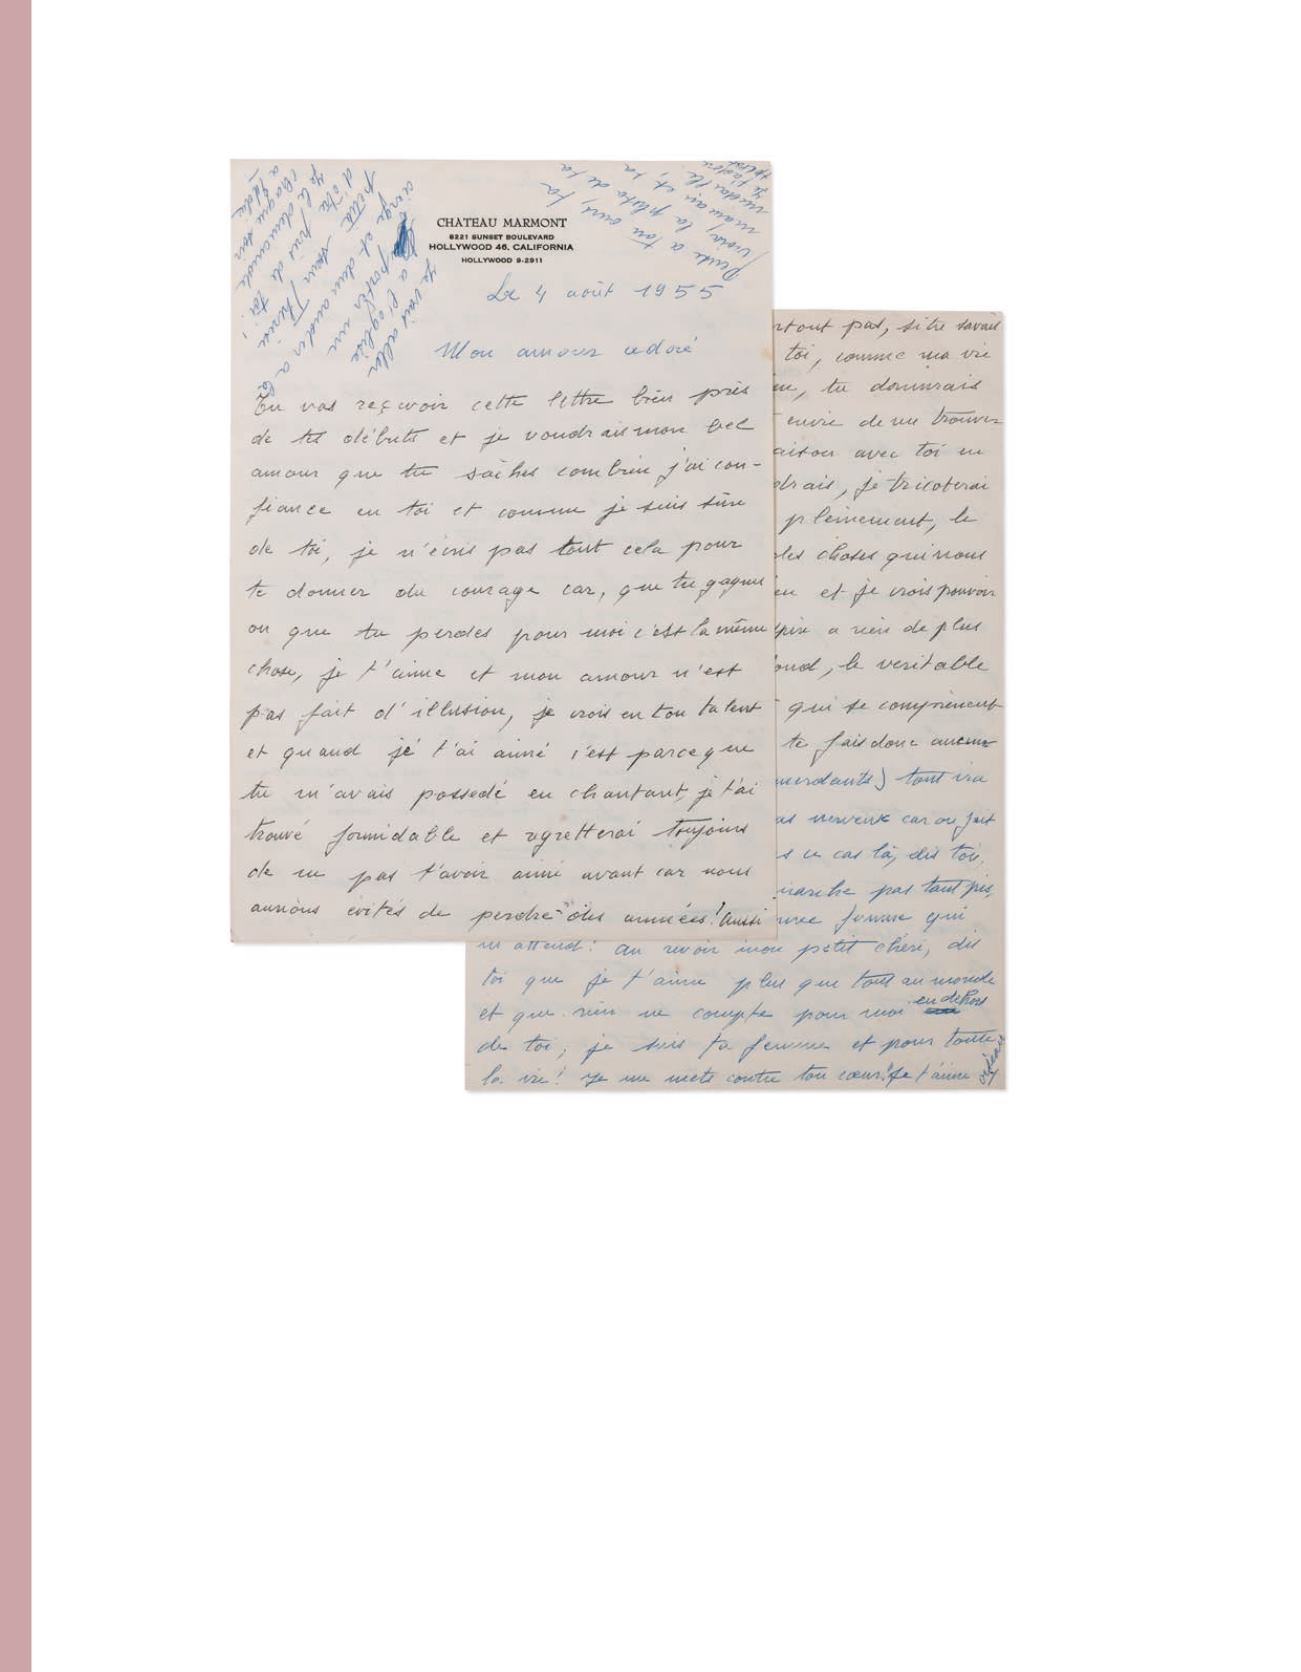 CHATEAU MARMONT
8221 SUNSET BOULEVARD
HOLLYWOOD 46, CALIFORNIA
HOLLYWOOD 9-2911
Le 4 août 1955
Mon amour adoré
Tu vas reçevoir cette lettre bien près
de tes débuts et je voudrais mon bel
amour que tu saches combien j'ai con-
fiance en toi et comme je suis sûre
de toi, je n'écris pas tout cela pour
te donner du courage car, que tu gagnes
ou que tu perdes pour moi c'est la même
chose, je t'aime et mon amour n'est
pas fait d'illusion, je crois en ton talent
et quand je t'ai aimé c'est parceque
tu m'avais possedé en chantant, je t'ai
trouvé formidable et regretterai toujours
de ne pas t'avoir aimé avant car nous
aurions évités de perdre des années! Aussi
Je vais aller
a l'église
porter un
cierge et demander a la
petite sœur Thérèse
d'être près de toi!
je le demande
chaque soir
a
Pense a ton ours, ta
la photo de ta
maman et, ta
medaille
Je t'adore
rtout pas, si tu savais
toi, comme ma vie
tu donnerais
envie de me trouver
aison avec toi en
drais, je tricoterai
pleinement, le
des choses qui nous
eu et je crois pouvoir
a rien de plus
ond, le veritable
qui se comprennent
te fais donc aucune
merdants) tout ira
as nerveux car on fait
s ce cas là, dis toi,
marche pas tant pis,
une femme qui
m'attend! Au revoir mon petit chéri, dis
toi que je t'aime plus que tout au monde
et que rien ne compte pour moi en dehors
de toi, je suis ta femme et pour toute
la vie! Je me mets contre ton cœur! Je t'aime